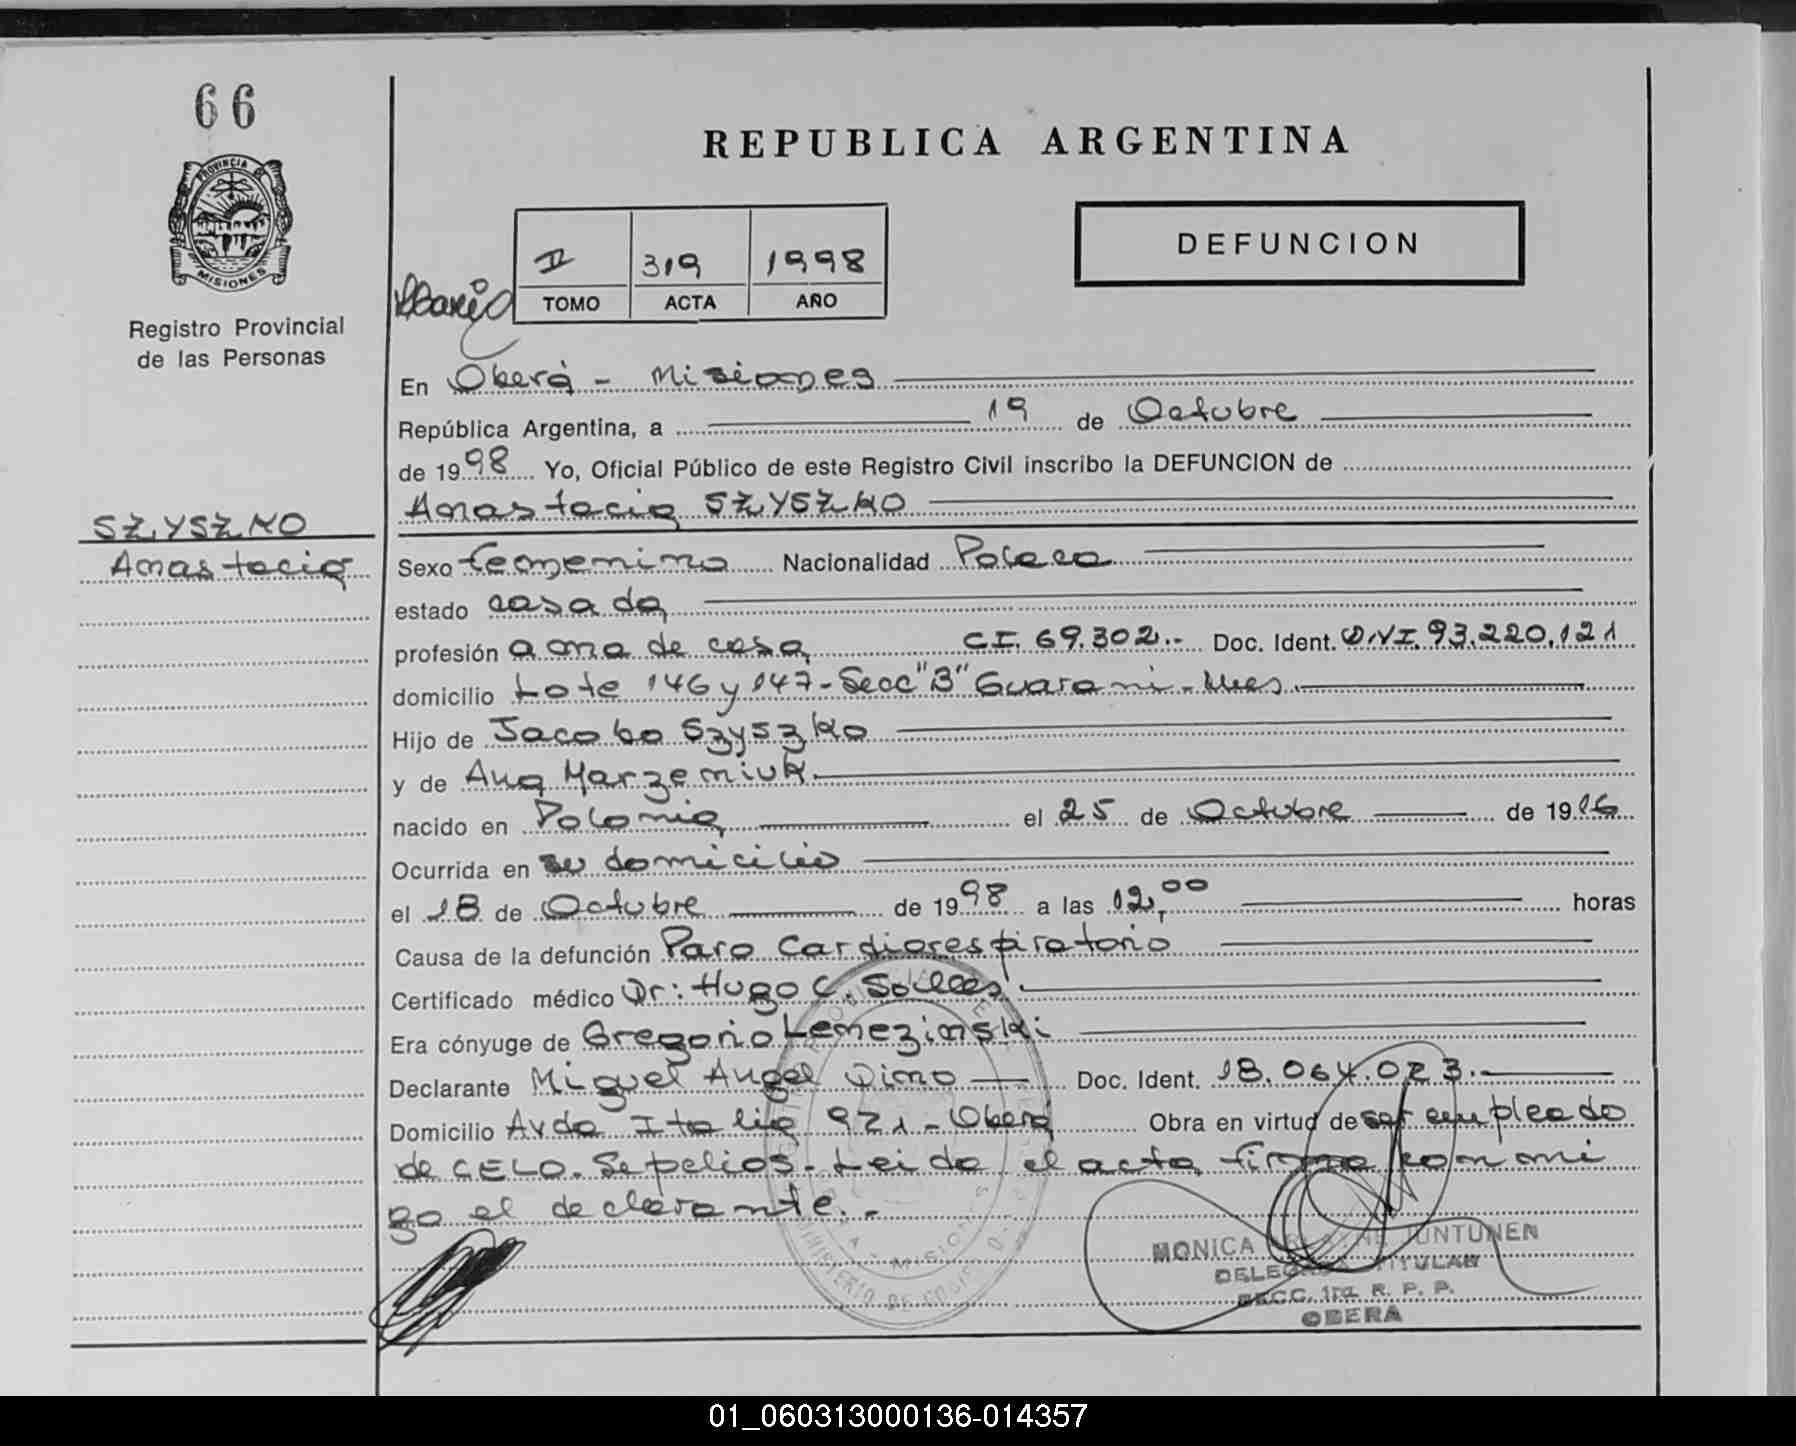 66
PROVINCIA DE
MISIONES
Registro Provincial
de las Personas
SZYSZKO
Anastacia
REPUBLICA ARGENTINA
DEFUNCION
II 319 1998
TOMO ACTA AÑO
En Oberá - Misiones
República Argentina, a 19 de Octubre
de 1998 Yo, Oficial Público de este Registro Civil inscribo la DEFUNCION de
Anastacia SZYSZKO
Sexo femenino Nacionalidad Polaca
estado casada
profesión ama de casa C.I. 69.302.- Doc. Ident. D.N.I. 93.220.121
domicilio Lote 146 y 147 - Secc "B" Guarani - Mnes.
Hijo de Jacobo Szyszko
y de Ana Marzeniuk.
nacido en Polonia el 25 de Octubre de 1916
Ocurrida en su domicilio
el 18 de Octubre de 1998 a las 12,00 horas
Causa de la defunción Paro Cardiorespiratorio
Certificado médico Dr: Hugo C.
Era cónyuge de Gregorio Lemezinski
Declarante Miguel Angel Dino Doc. Ident. 18.064.023.-
Domicilio Avda Italia 921 - Oberá Obra en virtud de ser empleado
de CELO. Sepelios - Leida el acta, firma conmi
go el declarante.-
MONICA JUNTUNEN
DELEGADA TITULAR
SECC. 1ra. R. P. P.
OBERA
01_060313000136-014357